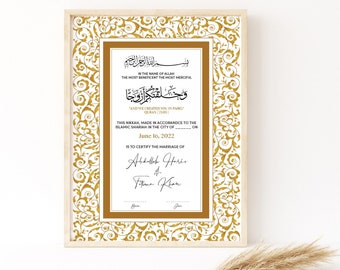 بسم الله الرحمن الرحيم
IN THE NAME OF ALLAH
THE MOST BENEFICENT THE MOST MERCIFUL
وخلقنكم أزوجا
(AND WE CREATED YOU IN PAIRS)
THIS NIKKAH, MADE IN ACCORDANCE TO THE
ISLAMIC SHARIAH IN THE CITY OF _______ ON
June 16, 2022
IS TO CERTIFY THE MARRIAGE OF
Abdullah Haris
&
Fatima Khan